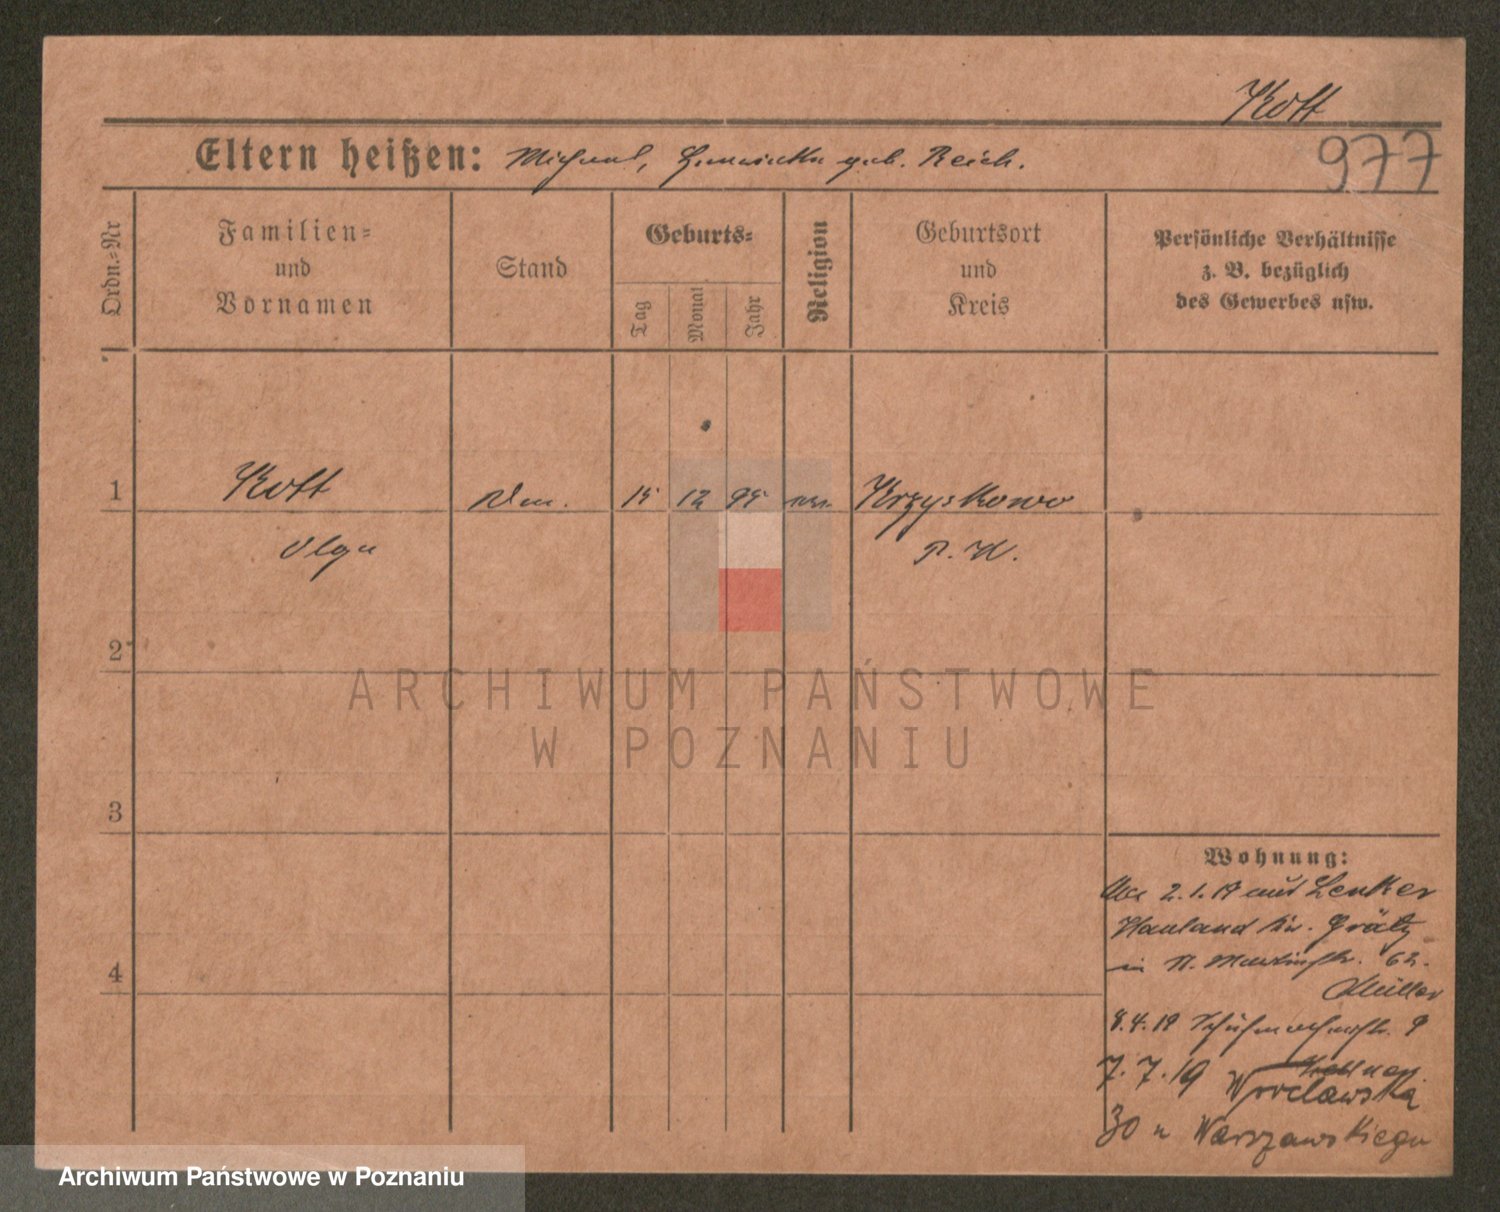 Kott
977
Eltern heißen: Michael, geb. Reich.
Ordn.=Nr
Familien=
und
Vornamen
Stand
Geburts=
Tag
Monat
Jahr
Religion
Geburtsort
und
Kreis
Persönliche Verhältnisse
z. B. bezüglich
des Gewerbes usw.
1
Kott
15
12
95
Krzyskowo
Olga
P. W.
2
3
4
Wohnung:
2.1.19 aus Lenker
Hauland Kr. Grätz
in St. Martinstr. 62.
Müller
8.4.19 Schuhmacherstr. 9
7.7.19
Wrocławska
30 u Warszawskiego
ARCHIWUM PAŃSTWOWE
W POZNANIU
Archiwum Państwowe w Poznaniu